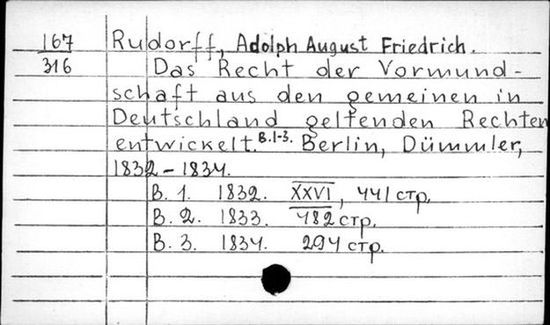 167 Rudorff, Adolph August Friedrich.
316 Das Recht der Vormund-
schaft aus den gemeinen in
Deutschland geltenden Rechten
entwickelt. B.1-3. Berlin, Dümmler,
1832-1834.
B. 1. 1832. XXVI, 441 стр.
B. 2. 1833. 482 стр.
B. 3. 1834. 294 стр.